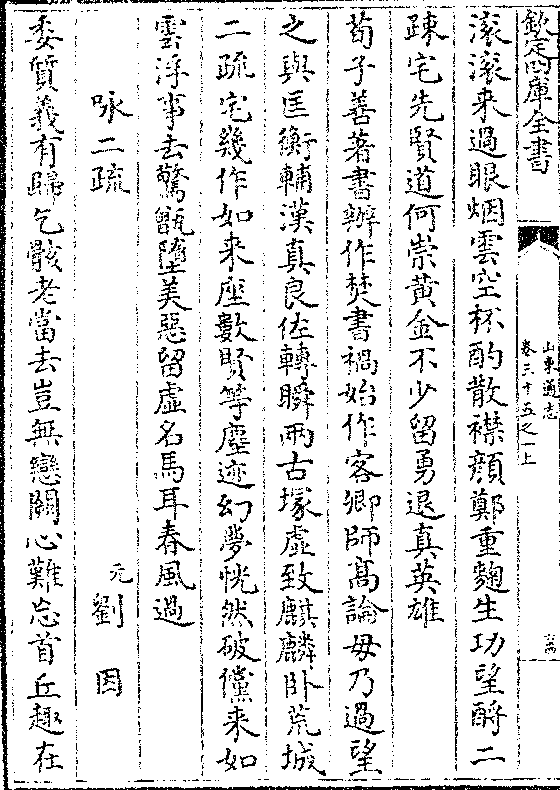 欽定四庫全書
山東通志
卷三十五之一上
滚滚来過眼烟雲空杯酌散襟顔鄭重麴生功望酹二
疎宅先賢道何崇黄金不少留勇退真英雄
荀子善著書辦作焚書禍始作客卿師髙論毋乃過望
之與匡衡輔漢真良佐轉瞬兩古塚虚致麒麟卧荒城
二疏宅幾作如来座數賢等塵迹幻夢恍然破儻来如
雲浮事去驚甑墮美惡留虚名馬耳春風過
咏二疏
元劉因
委質義有歸乞骸老當去豈無戀闕心難忘首丘趣在